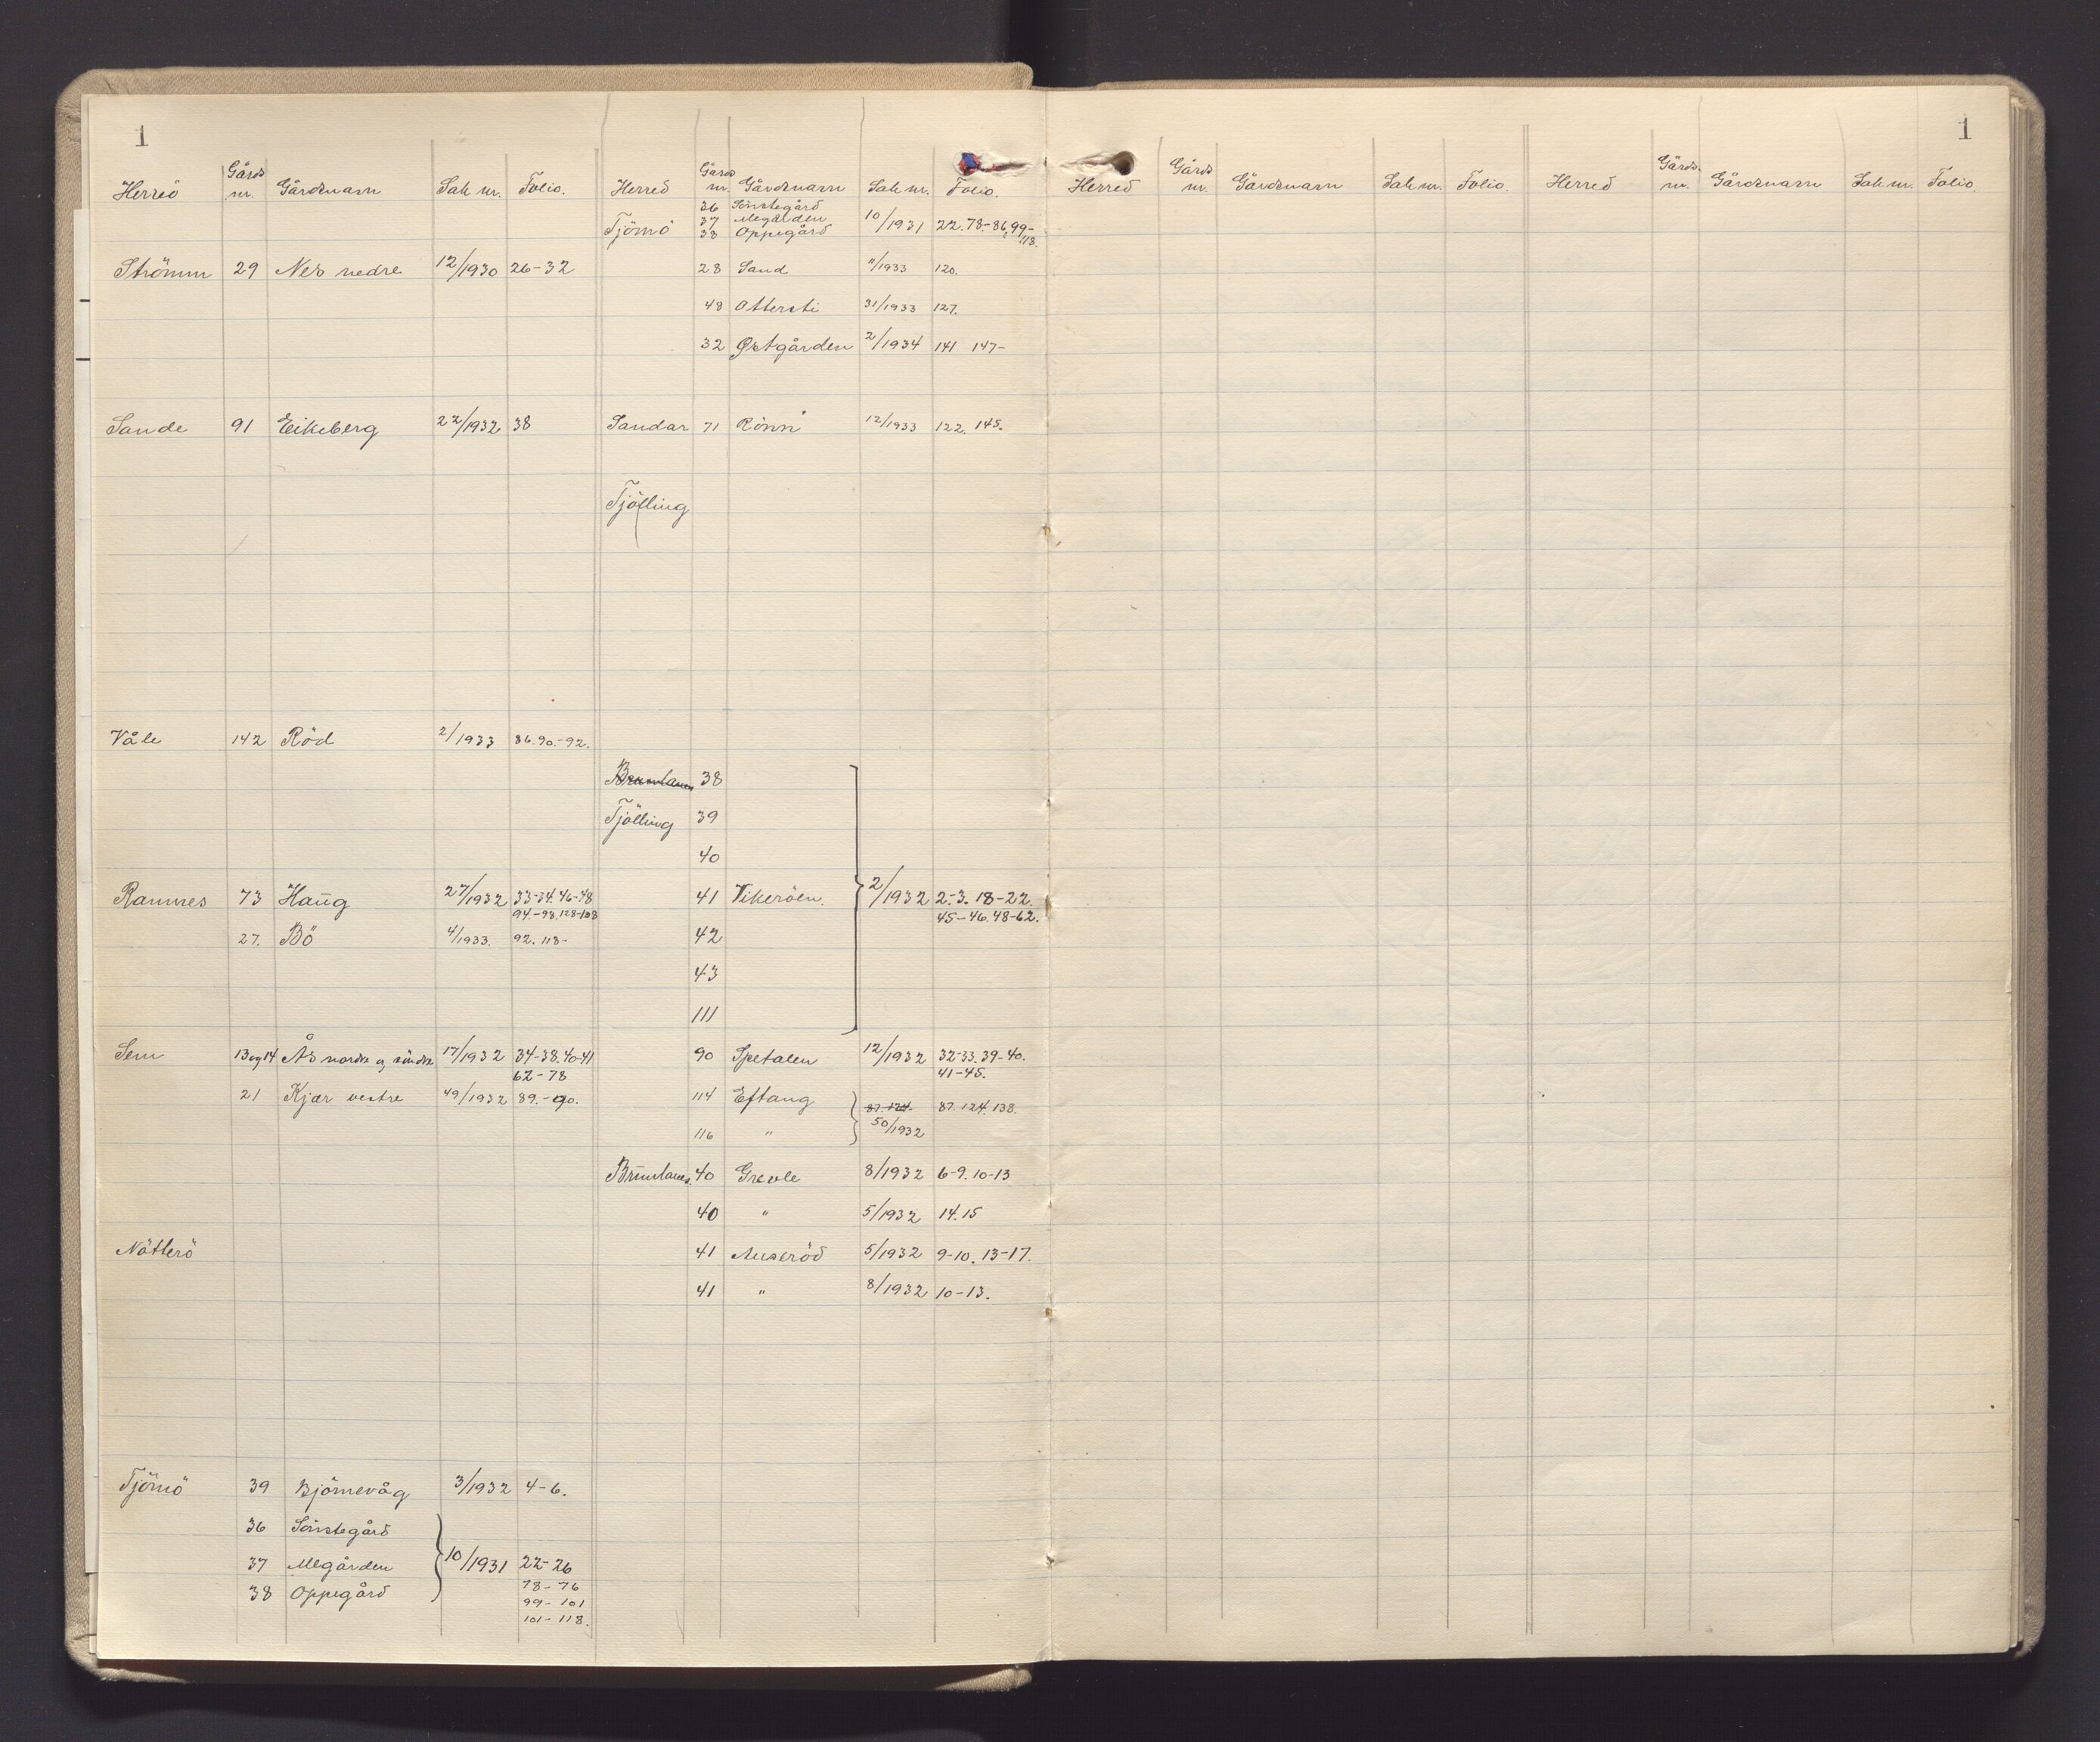 1
Herred Gårds nr. Gårdsnavn Sak nr. Folio.
Strömm 29 Nes nedre 12/1930 26-32
Sande 91 Eikeberg 22/1932 38
Våle 142 Röd 2/1933 86.90.-92.
Ramnes 73 Haug 27/1932 33-34.46-48
94.-98.128-108
27. Bö 4/1933. 92. 118-
Sem 13 og 14 Ås nordre og söndre 17/1932 34-38.40-41
62-78
21 Kjær vestre 49/1932 89.-90.
Nötterö
Tjömö 39 Björnevåg 3/1932 4-6.
36 Sönstegård
37 Melgården 10/1931 22-26
78-76
38 Oppegård
99-101
101-118.
Herred Gårds nr. Gårdsnavn Sak nr. Folio.
36 Sönstegård
37 Melgården
Tjömö 38 Oppegård 10/1931 22.78-86,99-
118.
28 Sand 11/1933 120.
48 Ottersti 31/1933 127.
32 Østgården 2/1934 141 147-
Sandar 71 Rönn 12/1933 122. 145.
Tjölling
Brunlanes 38
Tjölling 39
40
41 Vikeröen. 2/1932 2.-3. 18-22.
45-46.48-62.
42
43
111
90 Spetalen 12/1932 32-33.39-40.
41-45.
114 Eftang 87.124. 87.124.138.
116 " 50/1932
Brunlanes. 40 Grevle 8/1932 6-9.10-13
40 " 5/1932 14.15
41 Auseröd 5/1932 9-10. 13-17.
41 " 8/1932 10-13.
1
Herred Gårds nr. Gårdsnavn Sak nr. Folio. Herred Gårds nr. Gårdsnavn Sak nr. Folio.